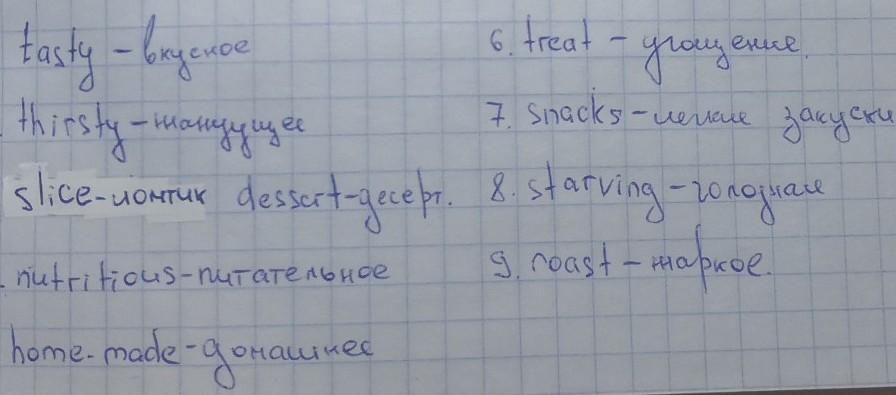 tasty – вкусное
thirsty – жаждущее
slice – ломтик dessert – десерт.
nutritious – питательное
home-made – домашнее
6. treat – угощение.
7. snacks – легкие закуски
8. starving – голодная
9. roast – жаркое.